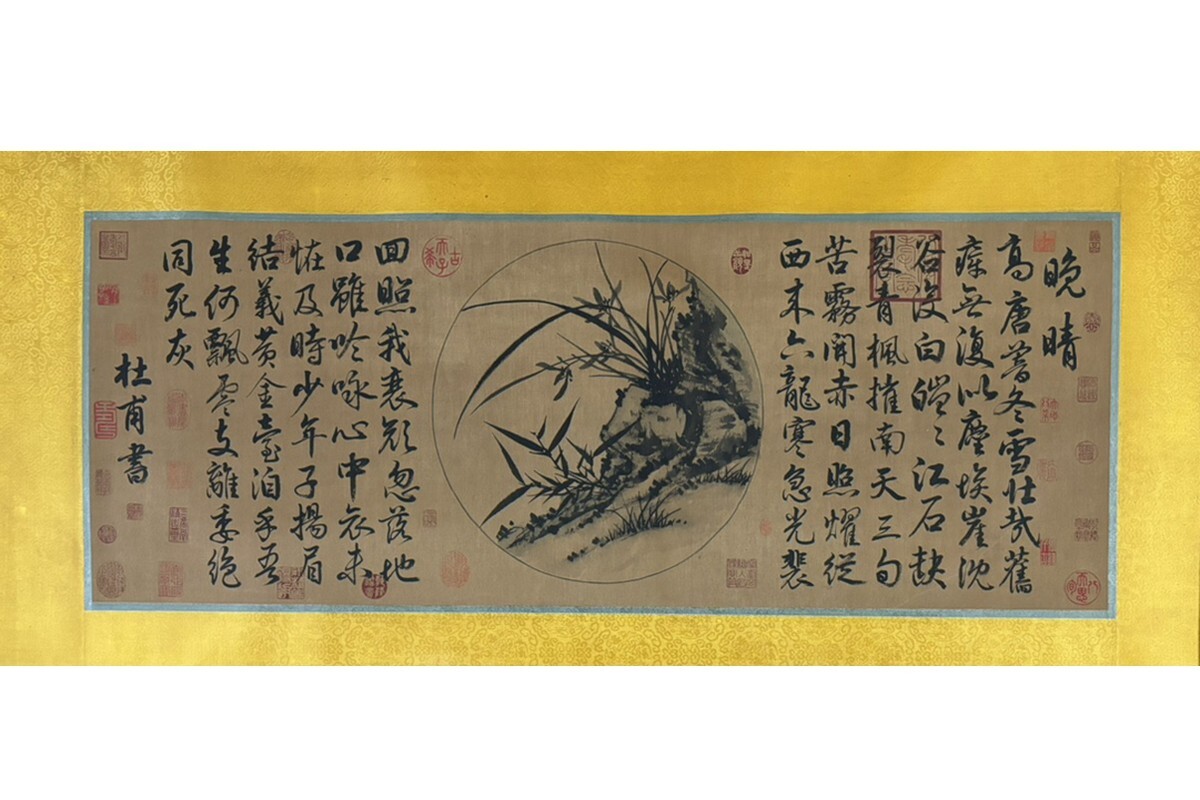 晚晴
高唐暮冬雪壯哉舊
瘴無復似塵埃崖沈
谷沒白皚〻江石缺
裂青楓摧南天三旬
苦霧開赤日照耀從
西来六龍寒急光裴
回照我衰顏忽落地
口雖吟詠心中哀未
恠及時少年子揚眉
結義黄金臺洎乎吾
生何飄零支離委絶
同死灰
杜甫書
古希天子